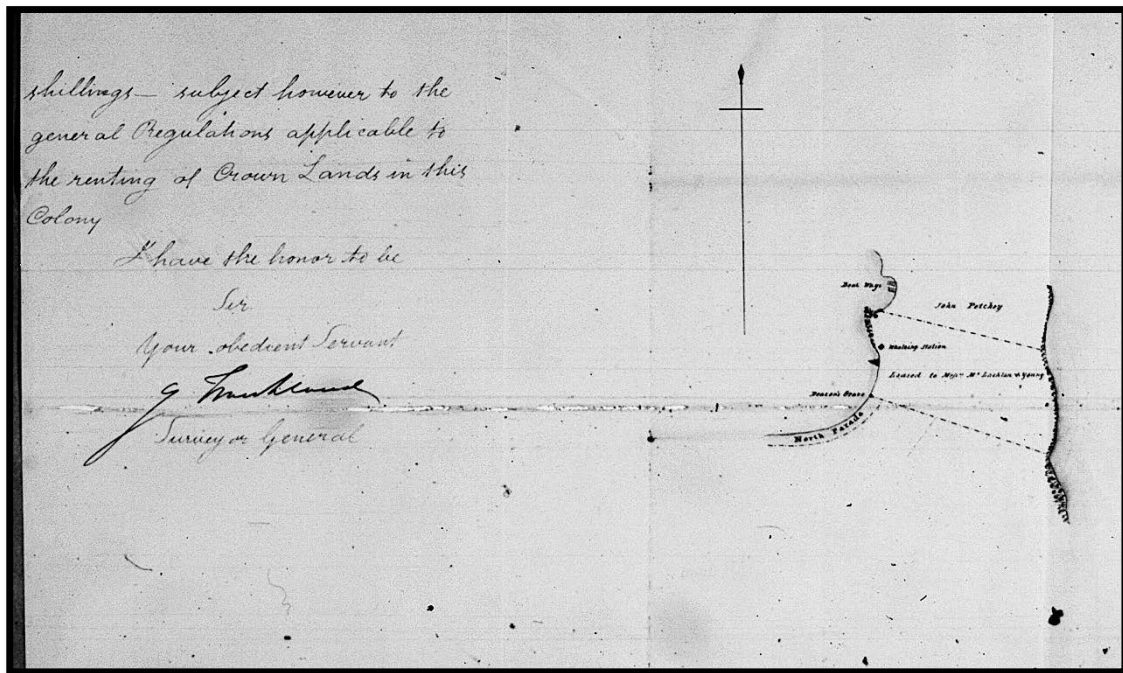 shillings — subject however to the
general Regulations applicable to
the renting of Crown Lands in this
Colony
I have the honor to be
Sir
Your obedient Servant
G Frankland
Surveyor General
Boat Ways
John Petchey
Whaling Station
Leased to Messrs. McLachlan & Young
Deacon's Grave
North Parade